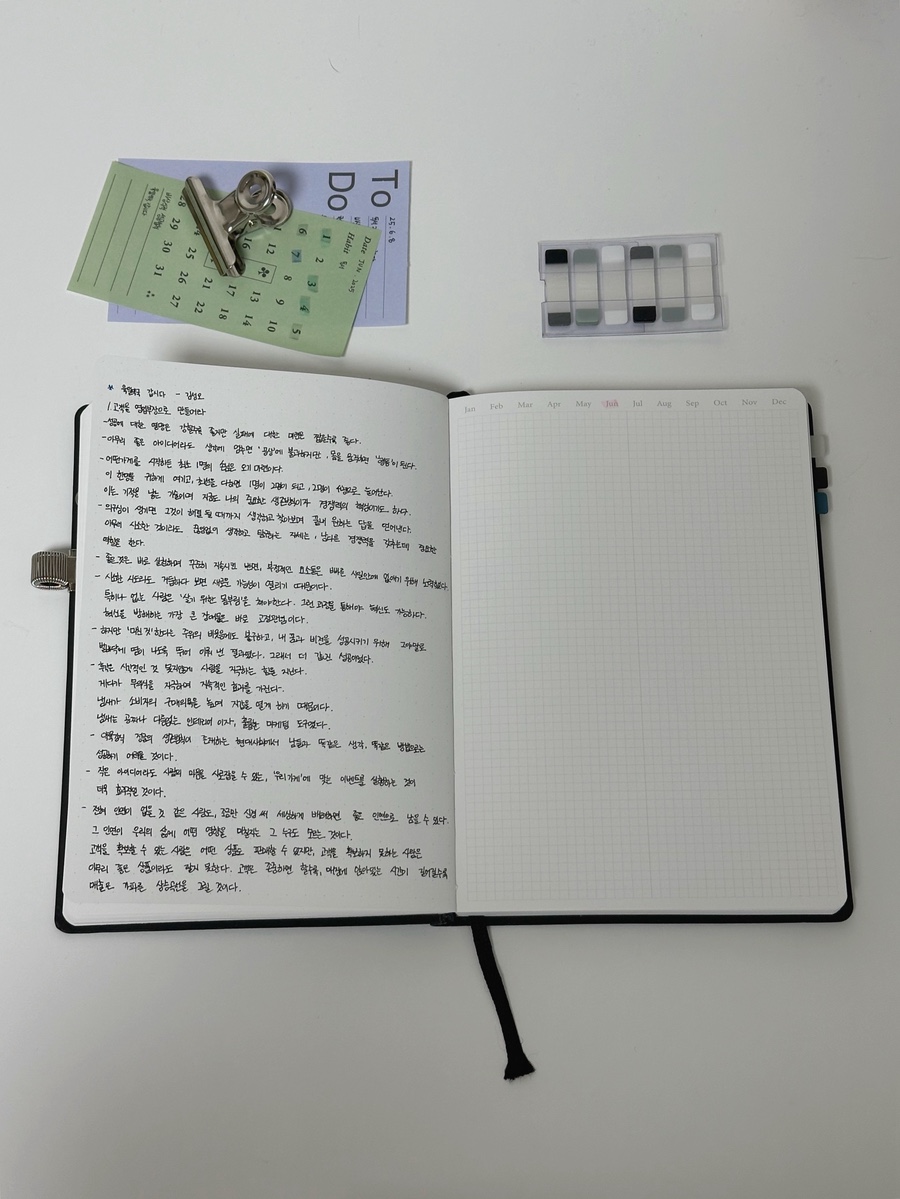 To
Do
25. 6. 8
Date Jun 2025
Habit
1 2 3 4 5
6 7 8 9 10
12 13 14
16 17 18
21
25 26 27
28 29 30 31
Jan Feb Mar Apr May Jun Jul Aug Sep Oct Nov Dec
* 육일약국 갑시다 - 김성오
1. 고객을 영업부장으로 만들어라
- 성공에 대한 열망은 강할수록 좋지만 실패에 대한 미련은 짧을수록 좋다.
- 아무리 좋은 아이디어라도 생각에 멈추면 '공상'에 불과하지만, 몸을 움직이면 '행동'이 된다.
- 어떤가게를 시작하든 최초 1명의 손님은 오기 마련이다.
이 한명을 귀하게 여기고, 최선을 다하면 1명이 2명이 되고, 2명이 4명으로 늘어난다.
이는 기적을 낳는 기술이며 지금도 나의 중요한 생존방식이자 경쟁력의 핵심이기도 하다.
- 의구심이 생기면 그것이 해결 될 때까지 생각하고 찾아보며 끝내 원하는 답을 얻어낸다.
아무리 사소한 것이라도 끊임없이 생각하고 탐구하는 자세는, 남다른 경쟁력을 갖추는데 중요한
역할을 한다.
- 좋은 것은 바로 실천하여 꾸준히 지속시킨 반면, 부정적인 요소들은 빠른 시일안에 없애기 위해 노력했다.
- 사소한 시도라도 거듭하다 보면 새로운 가능성이 열리기 때문이다.
특히나 없는 사람은 '살기 위한 몸부림'을 쳐야한다. 그런 과정을 통해야만 혁신도 가능하다.
혁신을 방해하는 가장 큰 장애물은 바로 고정관념이다.
- 하지만 '미친 짓'한다는 주위의 비웃음에도 불구하고, 내 꿈과 비전을 성공시키기 위하여 그야말로
발바닥에 땀이 나도록 뛰어 이뤄 낸 결과였다. 그래서 더 값진 성공이었다.
- 후각은 시각적인 것 못지않게 사람을 자극하는 힘을 지닌다.
게다가 무의식을 자극하며 지속적인 효과를 가진다.
냄새가 소비자의 구매의욕을 높이며 지갑을 열게 하기 때문이다.
냄새는 공짜나 다름없는 인테리어 이자, 훌륭한 마케팅 도구였다.
- 약육강식 정글의 생존방식이 존재하는 현대사회에서 남들과 똑같은 생각, 똑같은 방법으로는
성공하기 어려울 것이다.
- 작은 아이디어라도 사람의 마음을 사로잡을 수 있는, '우리가게'에 맞는 이벤트를 실행하는 것이
더욱 효과적일 것이다.
- 전혀 인연이 없을 것 같은 사람도, 조금만 신경 써 세심하게 배려하면 좋은 인연으로 남을 수 있다.
그 인연이 우리의 삶에 어떤 영향을 미칠지는 그 누구도 모르는 것이다.
고객을 확보할 수 있는 사람은 어떤 상품도 판매할 수 있지만, 고객을 확보하지 못하는 사람은
아무리 좋은 상품이라도 팔지 못한다. 고객은 존중하면 할수록, 매장에 앉아있는 시간이 길어질수록
매출은 가파른 상승곡선을 그릴 것이다.